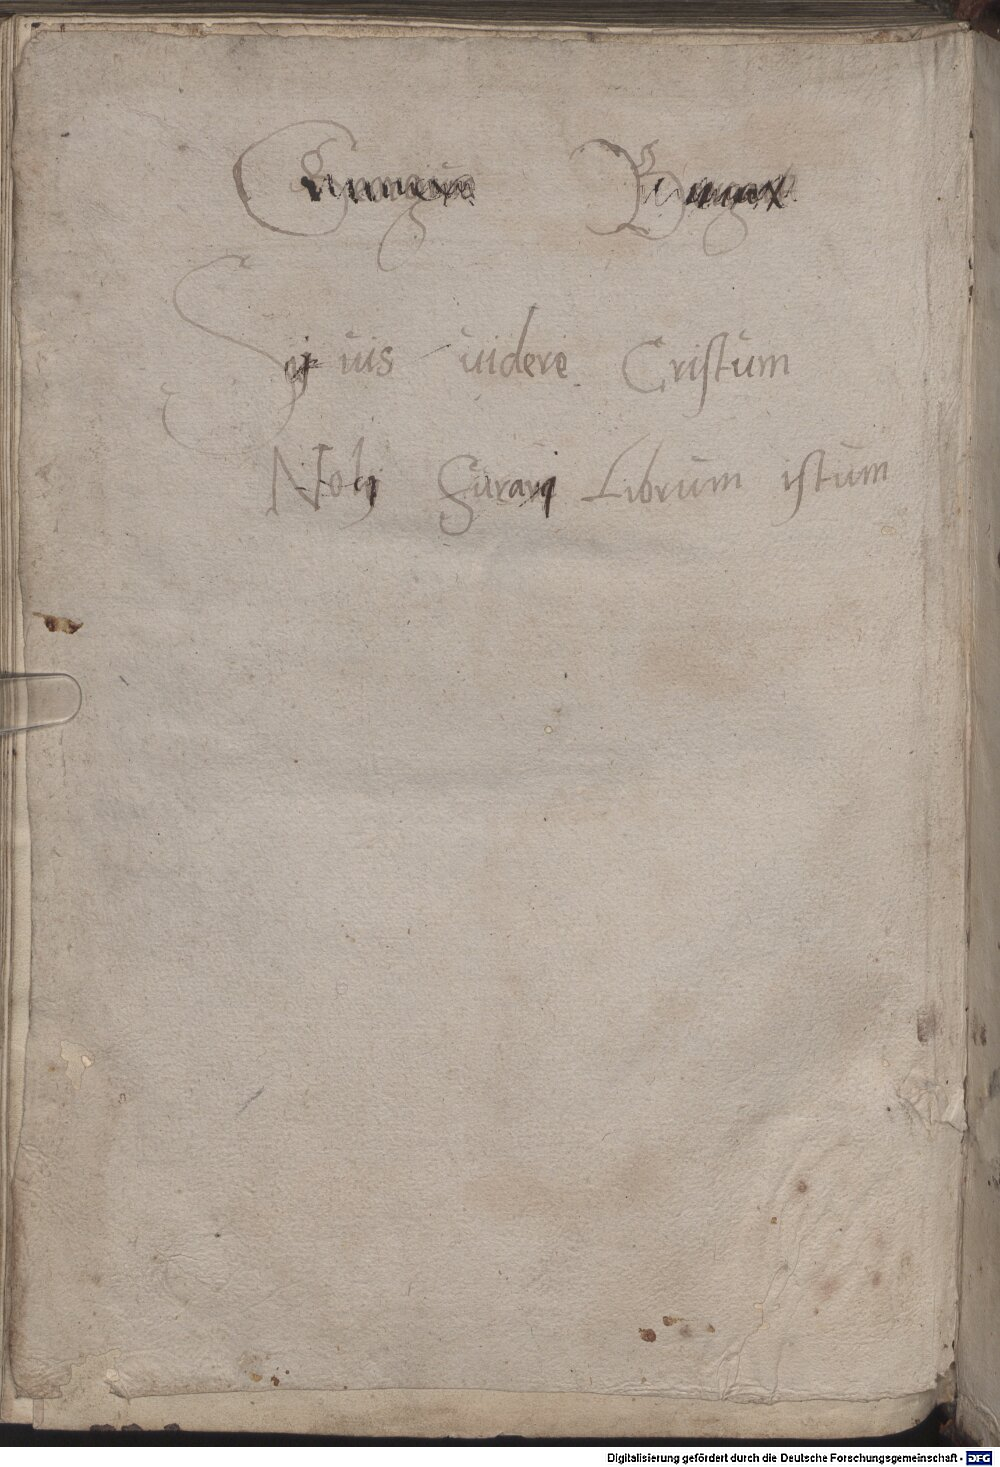 Sy uis uidere Cristum
Noly furary Librum istum
Digitalisierung gefördert durch die Deutsche Forschungsgemeinschaft - DFG